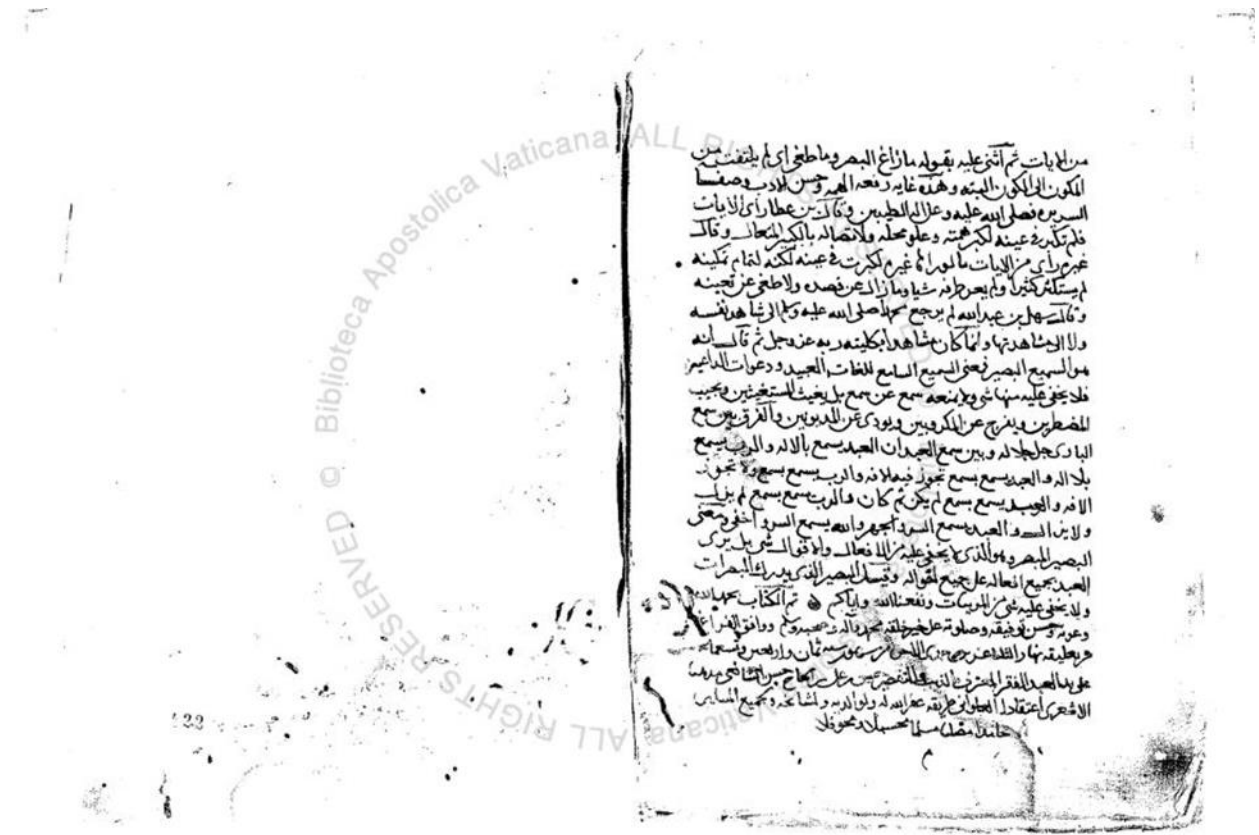 من الايات ثم اثنى عليه بقوله ما زاغ البصر وما طغى اى لم يلتفت من
المكون الى المكون البته وهذه غايه رفعه الهمه وحسن الادب وصفا
السريره فصلى الله عليه وعلى اله الطيبين وقال بن عطا راى الايات
فلم تكبر فى عينه لكبر همته وعلو محله ولاتصاله بالكبير المتعال وقال
غيره راى من الايات ما لو راها غيره لكبرت فى عينه لكنه لتمام تمكينه
لم يستكثر كثيرا ولم يعر طرفه شيا وما زال عن قصده ولا طغى عن
وقال سهل بن عبد الله لم يرجع محمد صلى الله عليه وسلم الى شاهد نفسه
ولا الى مشاهدتها وانما كان مشاهدا بكليته ربه عز وجل ثم قال انه
هو السميع البصير فمعنى السميع السامع للغات العبيد ودعوات الداعين
فلا يخفى عليه منها شى ولا يمنعه سمع عن سمع بل يغيث المستغيثين ويجيب
المضطرين ويفرج عن المكروبين ويودى عن المديونين والفرق بين سمع
البارى جل جلاله وبين سمع العبد ان العبد يسمع بالاله والرب يسمع
بلا اله والعبد يسمع بسمع تجوز فيه الافه والرب يسمع بسمع ولا تجوز
الافه والعبد يسمع بسمع لم يكن ثم كان والرب يسمع بسمع لم يزل
ولا يزال والعبد يسمع السر والجهر والله يسمع السر واخفى ومعنى
البصير المبصر وهو الذى لا يخفى عليه من الافعال والاقوال شى بل يرى
العبد بجميع افعاله على جميع اقواله وقيل البصير الذى يدرك المبصرات
ولا يخفى عليه شى من المرييات ونفعنا الله واياكم تم الكتاب بحمد الله
وعونه وحسن توفيقه وصلوته على خير خلقه محمد واله وصحبه وسلم ووافق الفراغ
من تعليقه نهار الثلثا سنه ثمان واربعين وتسعمائه
على يد العبد الفقير المعترف بالذنب والتقصير على بن الحاج حسن الشافعى مذهبا
الاشعرى اعتقادا طريقه غفر الله له ولوالديه ولمشايخه ولجميع المسلمين
حامدا مصليا مسلما محسبلا ومحوقلا
م
132